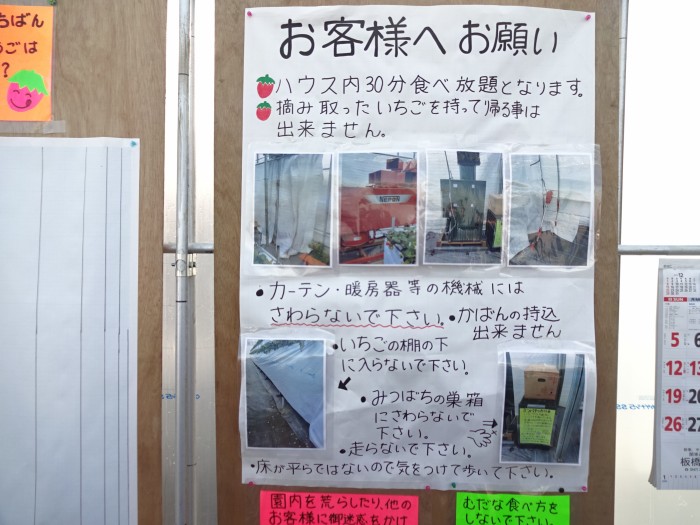 ちばん
ごは
?
お客様へ お願い
ハウス内30分食べ放題となります。
摘み取ったいちごを持って帰る事は
出来ません。
NEPON
•カーテン・暖房器等の機械には
さわらないで下さい。
•かばんの持込
出来ません
•いちごの棚の下
に入らないで下さい。
•みつばちの巣箱
にさわらないで
下さい。
•走らないで下さい。
•床が平らではないので気をつけて歩いて下さい。
園内を荒らしたり、他の
お客様に御迷惑をかけ
むだな食べ方を
しないで下さい。
5 6
12 13
19 20
26 27
板橋